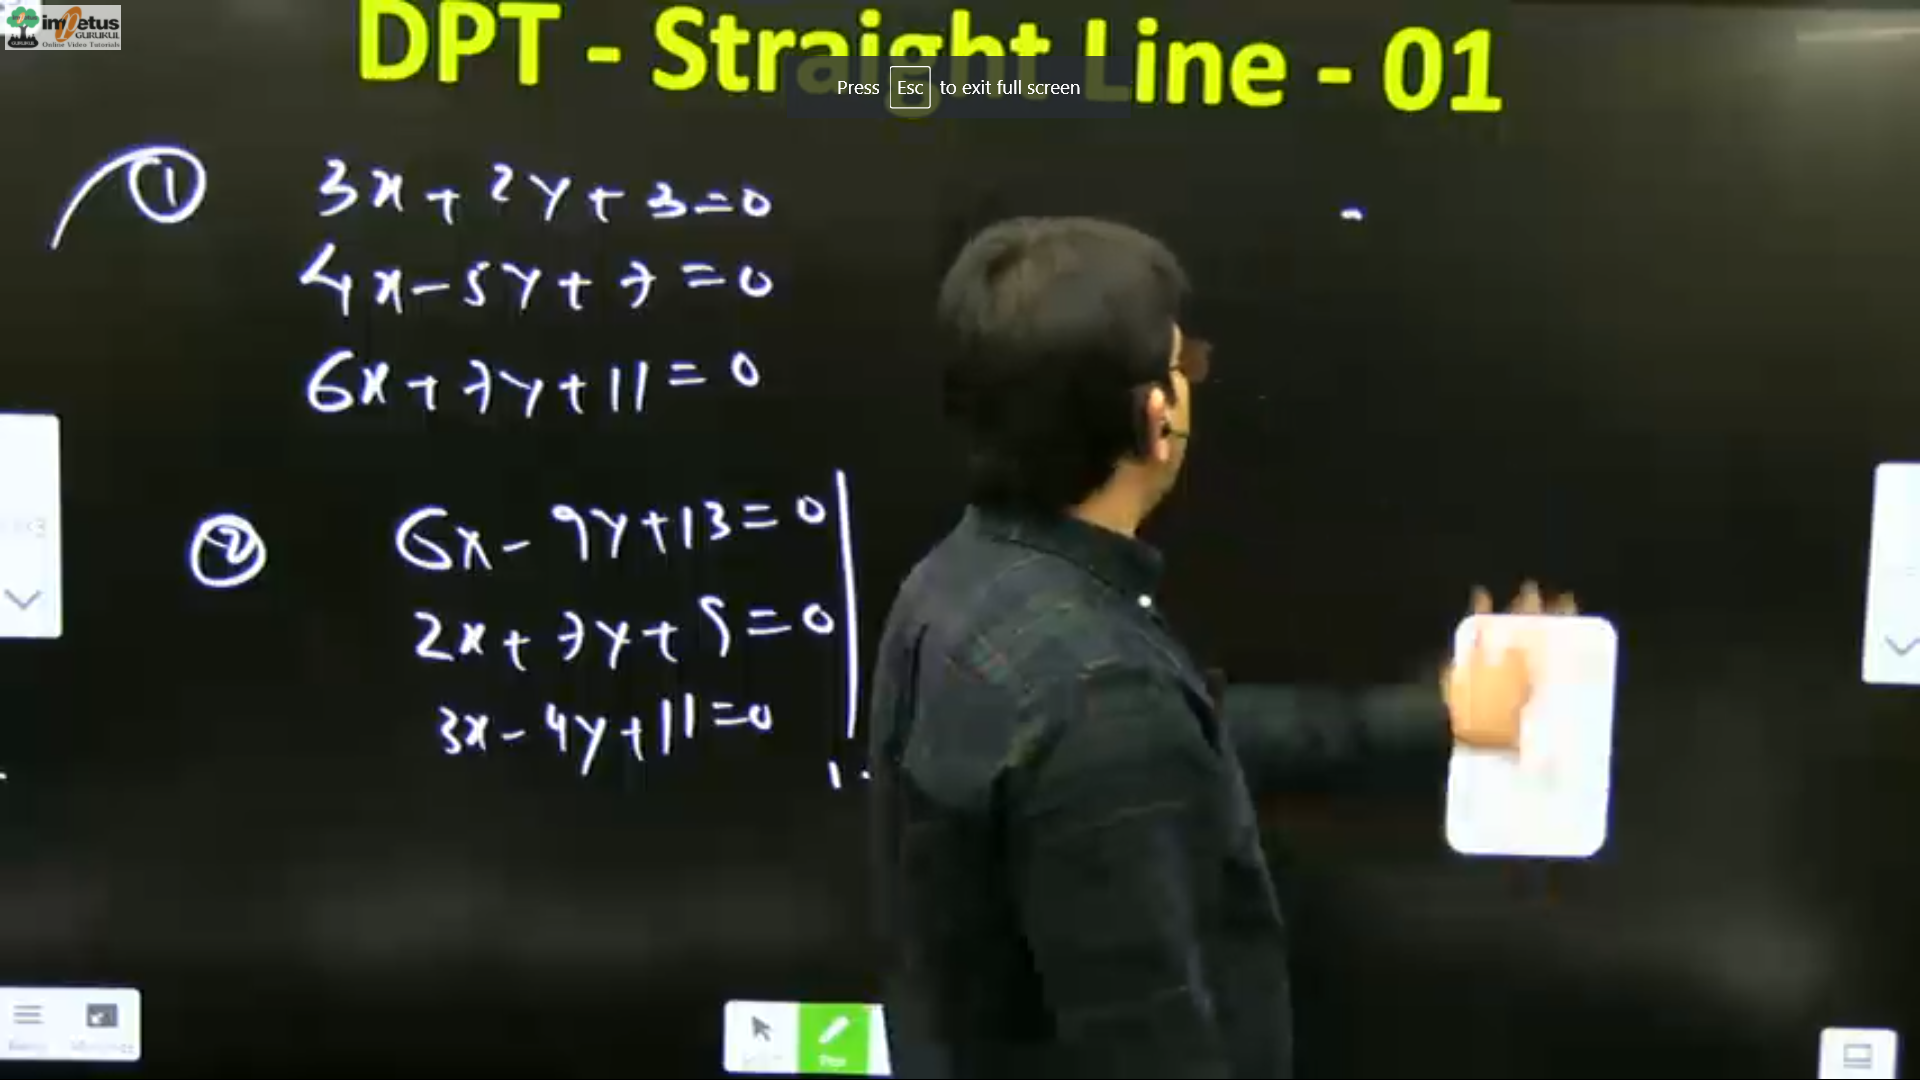 impetus
GURUKUL
Online Video Tutorials
DPT - Straight Line - 01
Press Esc to exit full screen
① 3x + 2y + 3 = 0
4x - 5y + 7 = 0
6x + 7y + 11 = 0
② 6x - 9y + 13 = 0
2x + 7y + 5 = 0
3x - 4y + 11 = 0
Pen